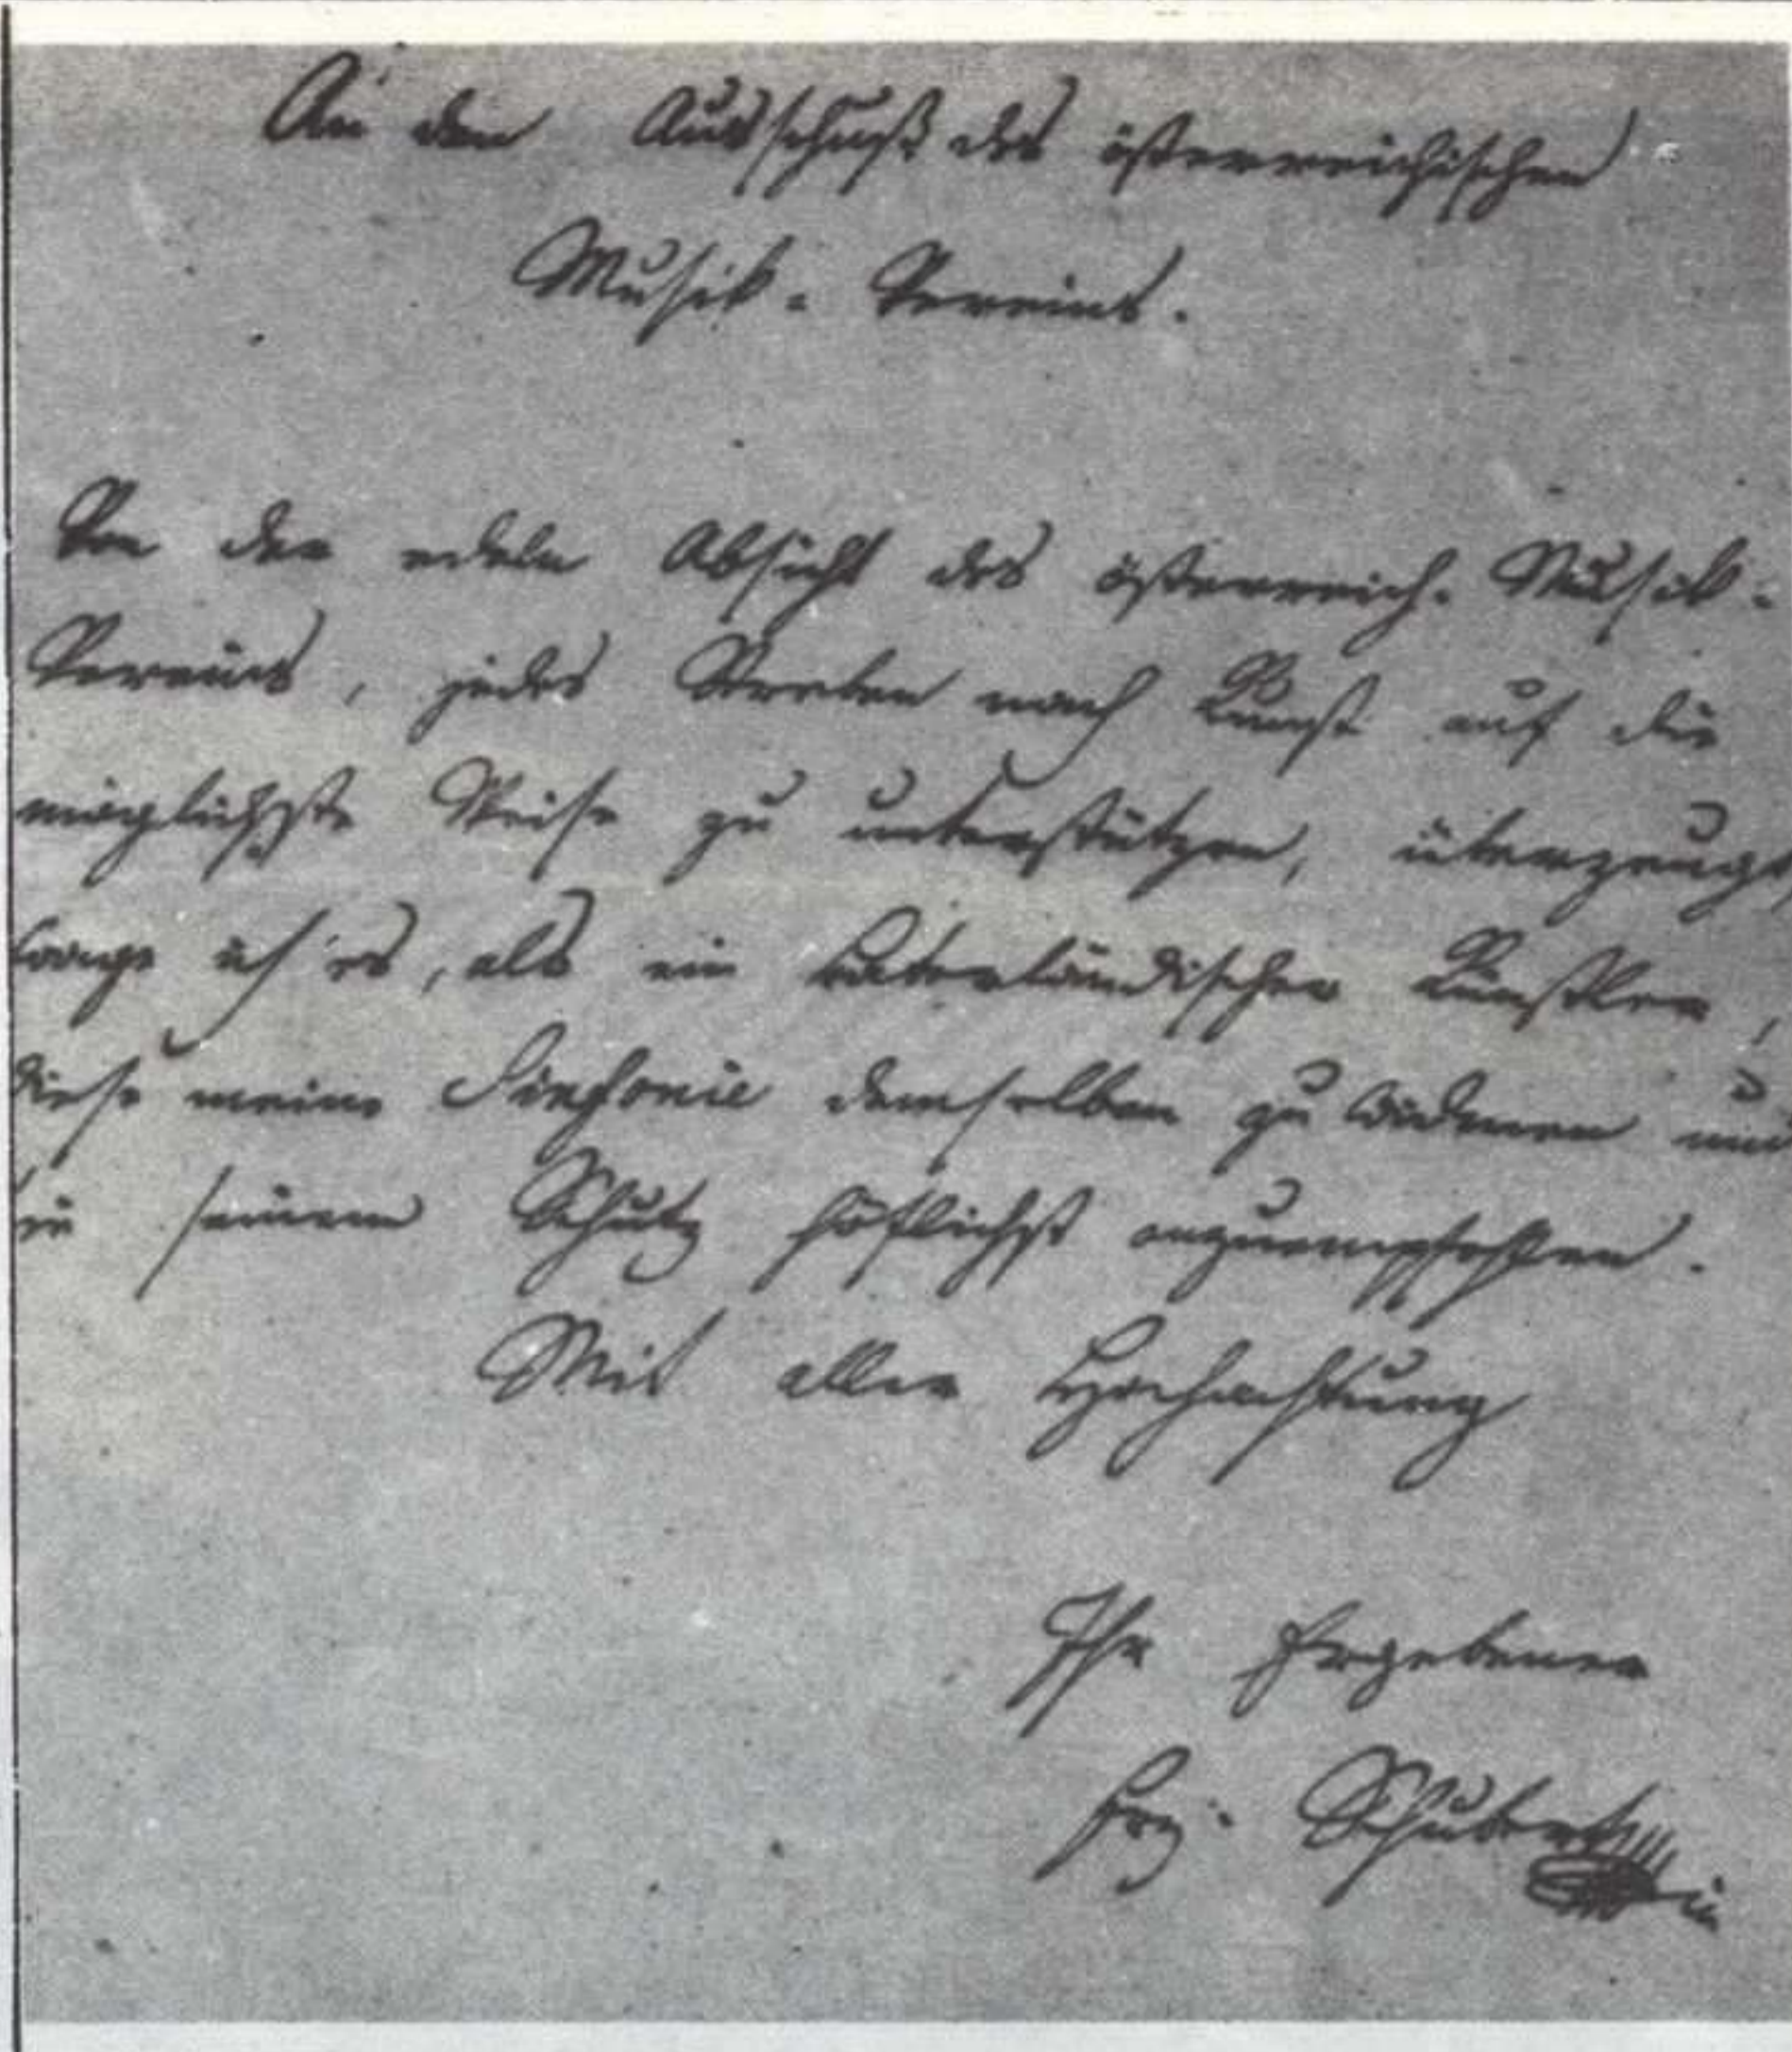 An den Ausschuß des österreichischen
Musik-Vereins.
Von der edeln Absicht des österreich. Musik-
Vereins, jedes Streben nach Kunst auf die
möglichste Weise zu unterstützen, überzeugt,
wage ich es, als ein vaterländischer Künstler,
diese meine Sinfonie demselben zu widmen und
sie seinem Schutz höflichst anzuempfehlen.
Mit aller Hochachtung
Ihr Ergebener
Frz. Schubert